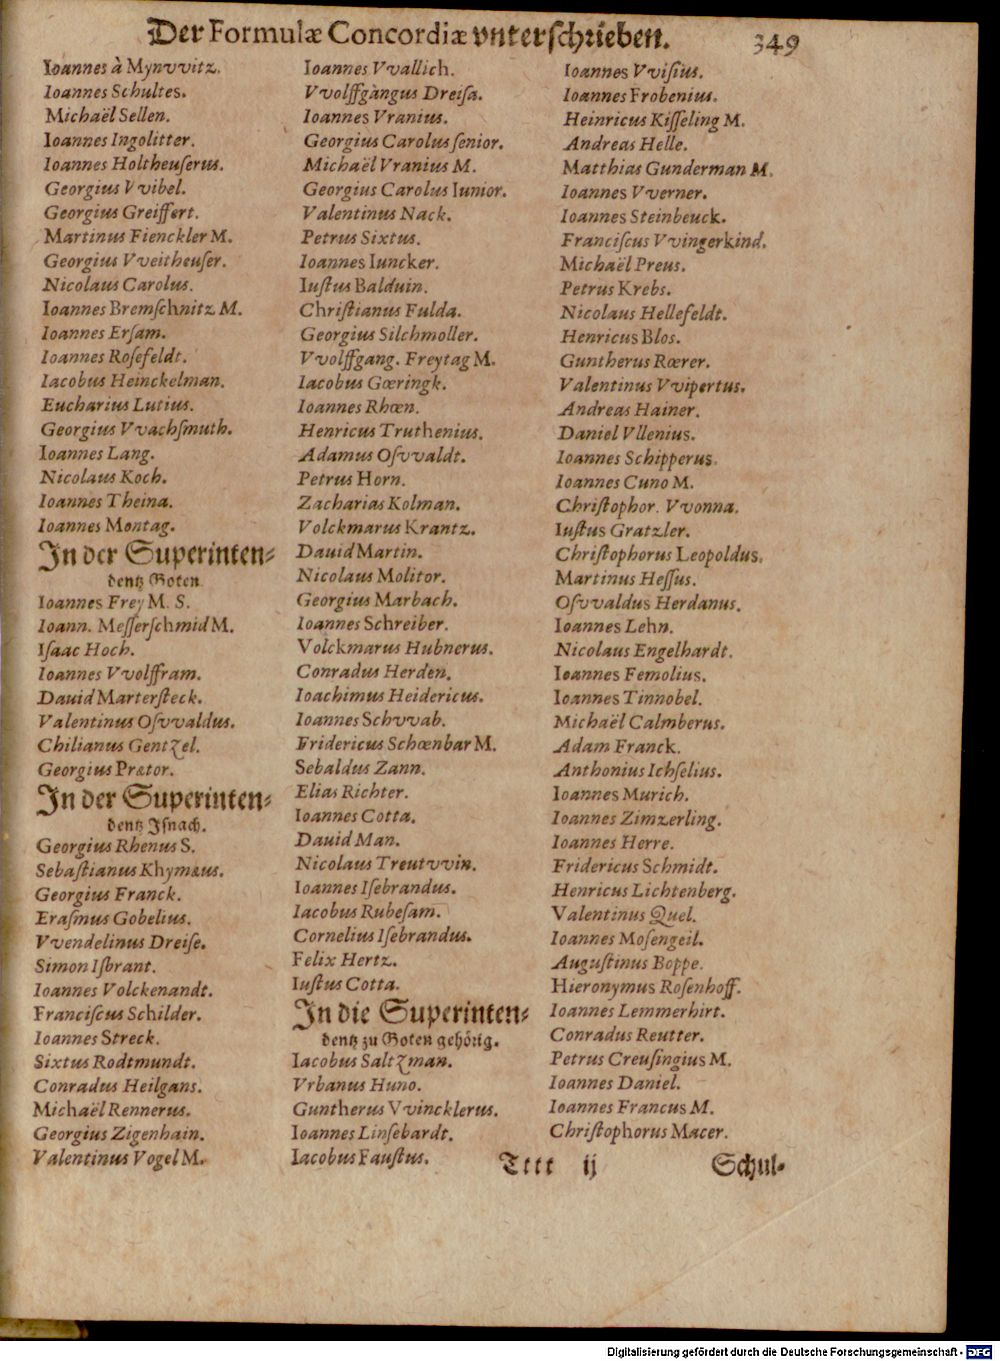 Der Formulæ Concordiæ vnterschrieben. 349
Ioannes à Mynvvitz.
Ioannes Schultes.
Michaël Sellen.
Ioannes Ingolitter.
Ioannes Holtheuſerus.
Georgius Vvibel.
Georgius Greiffert.
Martinus Fienckler M.
Georgius Vveitheuſer.
Nicolaus Carolus.
Ioannes Bremſchnitz M.
Ioannes Erſam.
Ioannes Roſefeldt.
Iacobus Heinckelman.
Eucharius Lutius.
Georgius Vvachſmuth.
Ioannes Lang.
Nicolaus Koch.
Ioannes Theina.
Ioannes Montag.
In der Superinten-
dentz Goten
Ioannes Frey M. S.
Ioann. Meſſerſchmid M.
Iſaac Hoch.
Ioannes Vvolffram.
Dauid Marterſteck.
Valentinus Oſvvaldus.
Chilianus Gentzel.
Georgius Prætor.
In der Superinten-
dentz Iſnach.
Georgius Rhenus S.
Sebaſtianus Khymæus.
Georgius Franck.
Eraſmus Gobelius.
Vvendelinus Dreiſe.
Simon Iſbrant.
Ioannes Volckenandt.
Franciſcus Schilder.
Ioannes Streck.
Sixtus Rodtmundt.
Conradus Heilgans.
Michaël Rennerus.
Georgius Zigenhain.
Valentinus Vogel M.
Ioannes Vvallich.
Vvolffgàngus Dreiſa.
Ioannes Vranius.
Georgius Carolus ſenior.
Michaël Vranius M.
Georgius Carolus Iunior.
Valentinus Nack.
Petrus Sixtus.
Ioannes Iuncker.
Iuſtus Balduin.
Chriſtianus Fulda.
Georgius Silchmoller.
Vvolffgang. Freytag M.
Iacobus Gœringk.
Ioannes Rhœn.
Henricus Truthenius.
Adamus Oſvvaldt.
Petrus Horn.
Zacharias Kolman.
Volckmarus Krantz.
Dauid Martin.
Nicolaus Molitor.
Georgius Marbach.
Ioannes Schreiber.
Volckmarus Hubnerus.
Conradus Herden.
Ioachimus Heidericus.
Ioannes Schvvab.
Fridericus Schœnbar M.
Sebaldus Zann.
Elias Richter.
Ioannes Cotta.
Dauid Man.
Nicolaus Treutvvin.
Ioannes Iſebrandus.
Iacobus Rubeſam.
Cornelius Iſebrandus.
Felix Hertz.
Iuſtus Cotta.
In die Superinten-
dentz zu Goten gehörig.
Iacobus Saltzman.
Vrbanus Huno.
Guntherus Vvincklerus.
Ioannes Linſebardt.
Iacobus Fauſtus.
Ioannes Vviſius.
Ioannes Frobenius.
Heinricus Kiſſeling M.
Andreas Helle.
Matthias Gunderman M.
Ioannes Vverner.
Ioannes Steinbeuck.
Franciſcus Vvingerkind.
Michaël Preus.
Petrus Krebs.
Nicolaus Hellefeldt.
Henricus Blos.
Guntherus Rœrer.
Valentinus Vvipertus.
Andreas Hainer.
Daniel Vllenius.
Ioannes Schipperus.
Ioannes Cuno M.
Chriſtophor. Vvonna.
Iuſtus Gratzler.
Chriſtophorus Leopoldus.
Martinus Heſſus.
Oſvvaldus Herdanus.
Ioannes Lehn.
Nicolaus Engelhardt.
Ioannes Femolius.
Ioannes Tinnobel.
Michaël Calmberus.
Adam Franck.
Anthonius Ichſelius.
Ioannes Murich.
Ioannes Zimzerling.
Ioannes Herre.
Fridericus Schmidt.
Henricus Lichtenberg.
Valentinus Quel.
Ioannes Moſengeil.
Auguſtinus Boppe.
Hieronymus Roſenhoff.
Ioannes Lemmerhirt.
Conradus Reutter.
Petrus Creuſingius M.
Ioannes Daniel.
Ioannes Francus M.
Chriſtophorus Macer.
Tttt ij Schul-
Digitalisierung gefördert durch die Deutsche Forschungsgemeinschaft - DFG